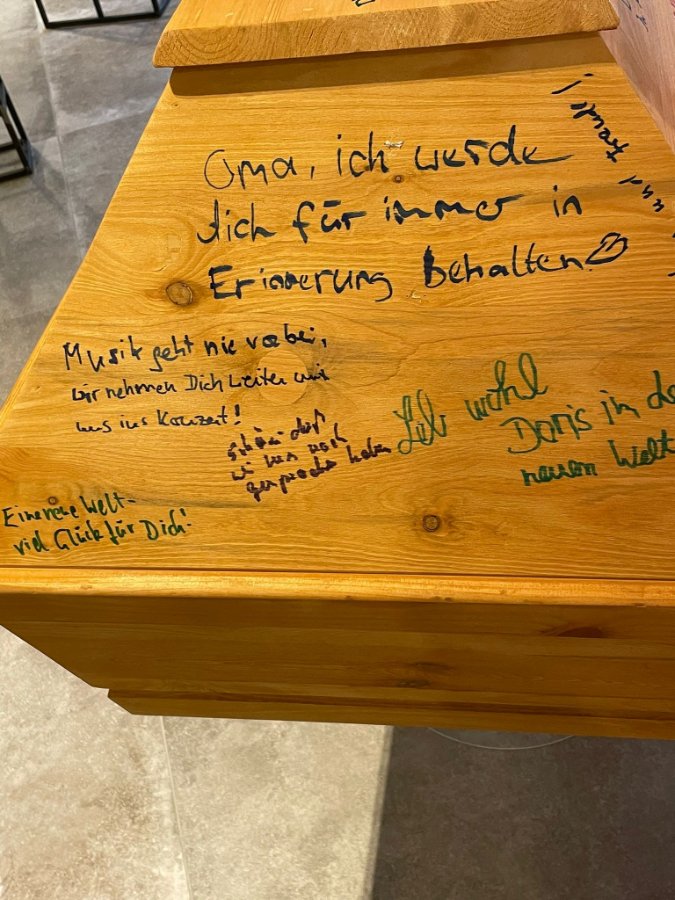 Oma, ich werde
dich für immer in
Erinnerung behalten
Freude
und
Musik geht nie vorbei,
wir nehmen Dich weiter mit
uns ins Konzert!
schön daß
wir uns noch
gesprochen haben
Leb wohl
Doris in de
neuen Welt
Eine neue Welt -
viel Glück für Dich!